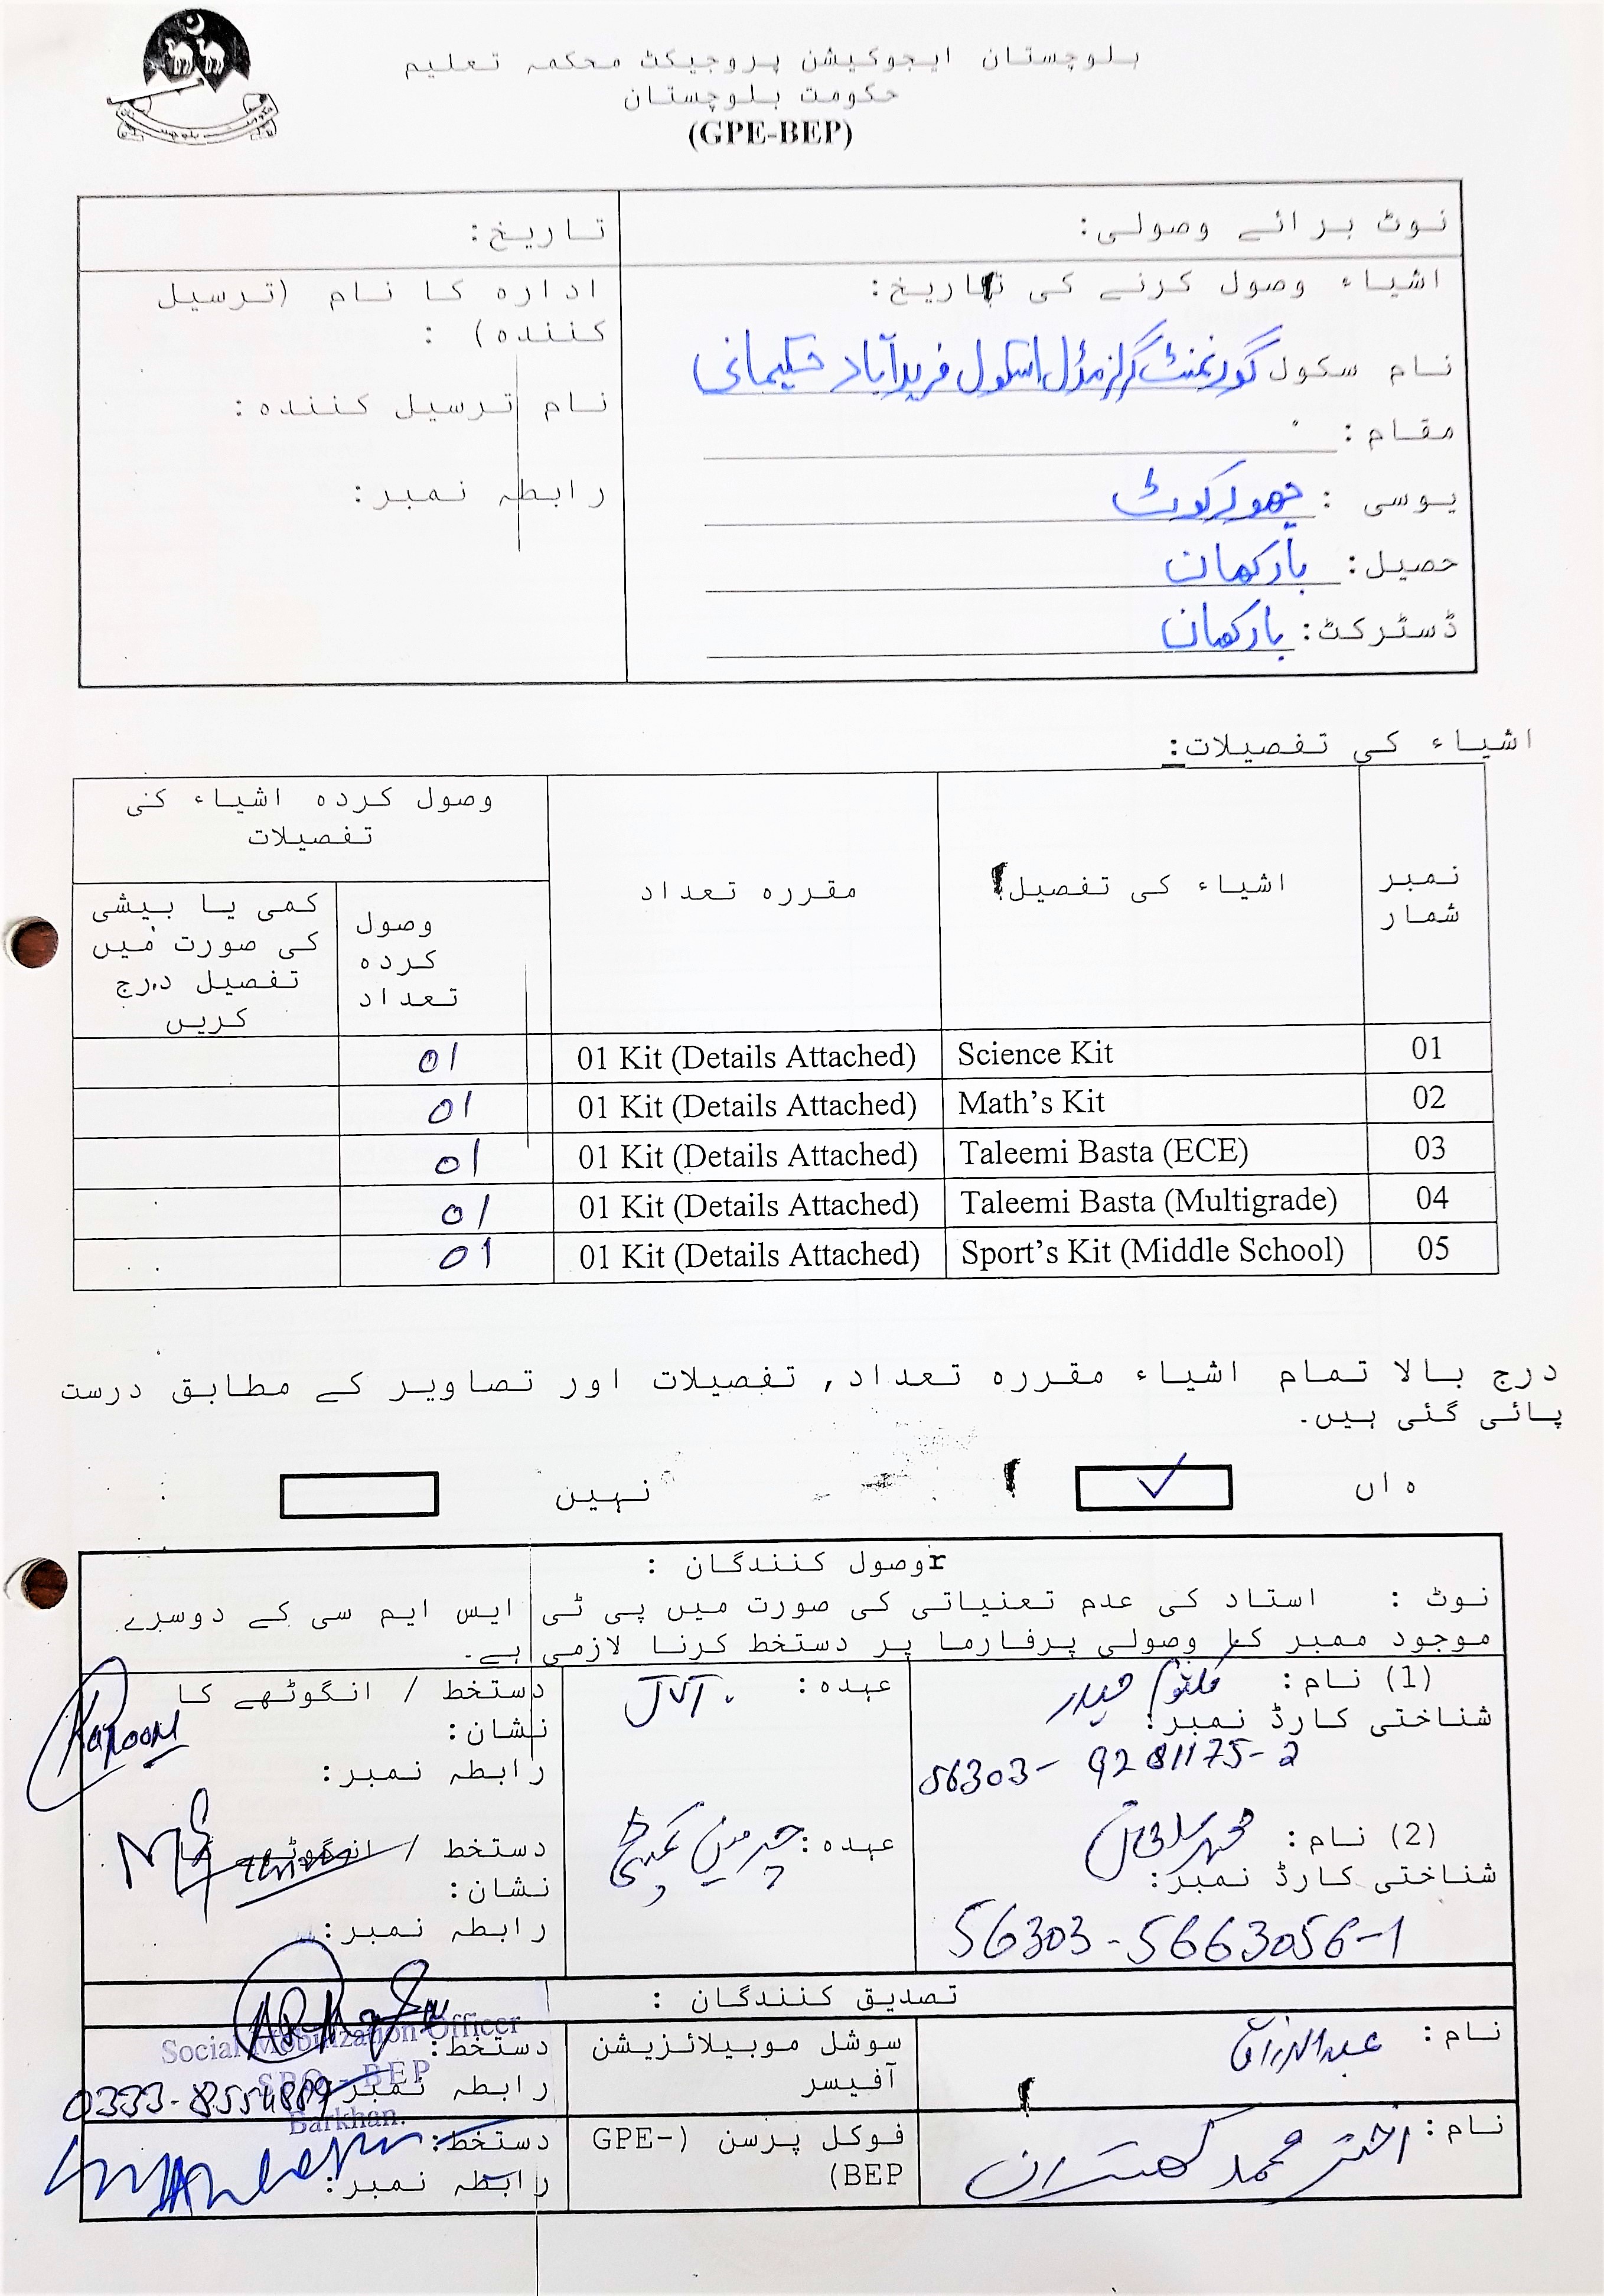 بلوچستان ایجوکیشن پروجیکٹ محکمہ تعلیم
حکومت بلوچستان
(GPE-BEP)
نوٹ برائے وصولی:
تاریخ:
اشیاء وصول کرنے کی تاریخ:
ادارہ کا نام (ترسیل
کنندہ) :
نام سکول گورنمنٹ گرلز مڈل اسکول فریدآباد حکیمانی
نام ترسیل کنندہ:
مقام:
رابطہ نمبر:
یوسی : چھورکوٹ
حصیل: بارکھان
ڈسٹرکٹ: بارکھان
اشیاء کی تفصیلات:
نمبر
شمار
اشیاء کی تفصیل
مقررہ تعداد
وصول کردہ اشیاء کی
تفصیلات
وصول
کردہ
تعداد
کمی یا بیشی
کی صورت میں
تفصیل درج
کریں
01 Science Kit 01 Kit (Details Attached) 01
02 Math’s Kit 01 Kit (Details Attached) 01
03 Taleemi Basta (ECE) 01 Kit (Details Attached) 01
04 Taleemi Basta (Multigrade) 01 Kit (Details Attached) 01
05 Sport’s Kit (Middle School) 01 Kit (Details Attached) 01
درج بالا تمام اشیاء مقررہ تعداد, تفصیلات اور تصاویر کے مطابق درست
پائی گئی ہیں۔
ہاں ✓ نہیں
rوصول کنندگان :
نوٹ : استاد کی عدم تعنیاتی کی صورت میں پی ٹی ایس ایم سی کے دوسرے
موجود ممبر کا وصولی پرفارما پر دستخط کرنا لازمی ہے۔
(1) نام: کلثوم حیدر
عہدہ: JVT.
دستخط / انگوٹھے کا
نشان:
شناختی کارڈ نمبر:
56303- 9281175-2
رابطہ نمبر:
(2) نام: محمد
عہدہ: چیرمین کمیٹی
دستخط / انگوٹھے کا
نشان:
شناختی کارڈ نمبر:
56303-5663056-1
رابطہ نمبر:
تصدیق کنندگان :
نام: عبدالرزاق
سوشل موبیلائزیشن
آفیسر
دستخط:
رابطہ نمبر: 0333-8554889
Social Mobilization Officer
SPO - BEP
Barkhan.
نام: اختر محمد کھیتران
فوکل پرسن (GPE-
BEP)
دستخط:
رابطہ نمبر: